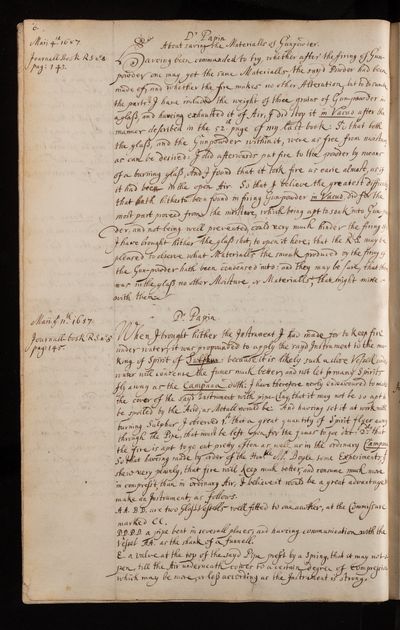 6.
May 4th 1687.
Journall Book R.S. v.8
pag: 142.
Dr Papin
About saving the Materialls of Gunpowder.
Having been commanded to try, whether after the firing of Gun-
powder one may get the same Materialls, the sayd Powder had been
made of; and whether the fire makes no other Alteration, but to disunite
the parts; I have included the weight of three grains of Gunpowder in
a glass, and having exhausted it of Air, I did stop it in Vacuo after the
manner described in the 52th page of my last book. So that both
the glass, and the Gunpowder within it, were as free from moisture
as can be desired. I did afterwards put fire to the powder by means
of a burning glass, And I found that it took fire as easie almost, as if
it had been in the open Air. So that I believe the greatest difficulty
that hath hitherto been found in firing Gunpowder in Vacuo, did for the
most part proceed from the moisture, which being apt to soak into Gunpow-
der, and not being well prevented, could very much hinder the firing of it.
I have brought hither the glass shut, to open it here, that the R.S. may be
pleased to observe what Materialls the smoak produced by the firing of
the Gunpowder hath been condensed into: and they may be sure, that there
was in the glass no other Moisture, or Materialls, that might mixe
with them.
May 11th 1687.
Journall book R.S. v.8
pag: 145.
Dr Papin.
When I brought hither the Instrument I had made for to keep fire
under water; it was propounded to apply the sayd Instrument to the ma-
king of Spirit of Sulphur: because it is likely such a close Vessel under
water will condense the fumes much better, and not let so many Spirits
fly away as the Campana doth. I have therefore newly endeavoured to make
the cover of the sayd Instrument with pipe-Clay, that it may not be so apt to
be spoiled by the Acid, as Metall would be. And having set it at work with
burning Sulphur, I observed 1st that a great quantity of Spirit flyes away
through the Pipe, that must be left open for the fumes to get out. 2ly that
the fire is apt to go out pretty often as well, as in the ordinary Campana
So that having made by order of the Honble Mr. Boyle some Experiments that
shew very plainly, that fire will keep much better, and consume much more
in comprest, than in ordinary Air, I believe it would be a great advantage to
make an Instrument, as follows.
AA. BB. are two Glass Vessels well fitted to one another, at the Commissure
marked CC.
DDDD a pipe bent in severall places, and having communication with the
Vessel AA. as the shank of a funnell.
E. a valve at the top of the sayd Pipe, prest by a Spring, that it may not o-
pen, till the Air underneath comes to a certain degree of compression
which may be more or less according as the Instrument is strong.